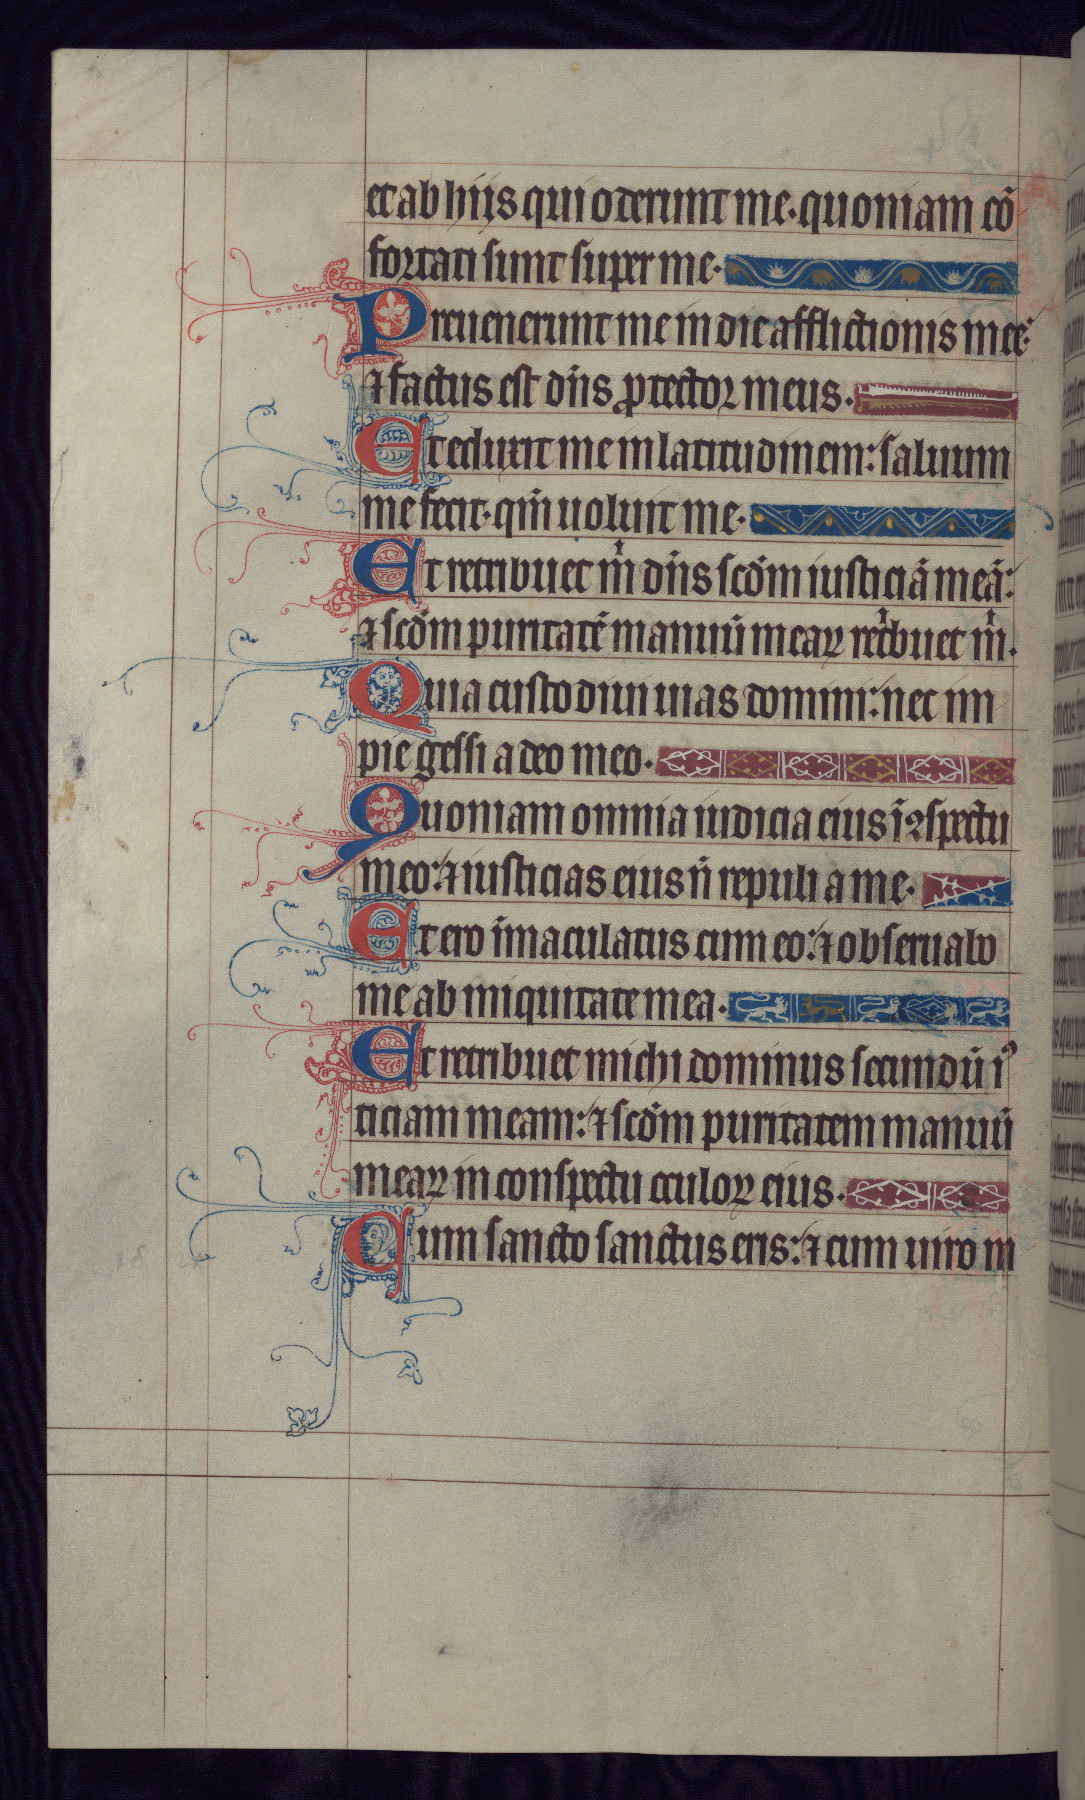 et ab hiis qui oderunt me. quoniam cō
fortati sunt super me.
Preuenerunt me in die afflictionis mee:
⁊ factus est dn̄s ꝓtector meus.
Et eduxit me in latitudinem: saluum
me fecit. qm̄ uoluit me.
Et retribuet m̍ dn̄s scd̄m iusticiā meā:
⁊ scd̄m puritatē manuū meaꝝ ret̍buet m̍.
Quia custodiui uias domini: nec im
pie gessi a deo meo.
Quoniam omnia iudicia eius ī ꝯspectu
meo: ⁊ iusticias eius n̄ repuli a me.
Et ero īmaculatus cum eo: ⁊ obseruabo
me ab iniquitate mea.
Et retribuet michi dominus secundū iꝰ
ticiam meam: ⁊ scd̄m puritatem manuū
meaꝝ in conspectu oculoꝝ eius.
Cum sancto sanctus eris: ⁊ cum uiro in